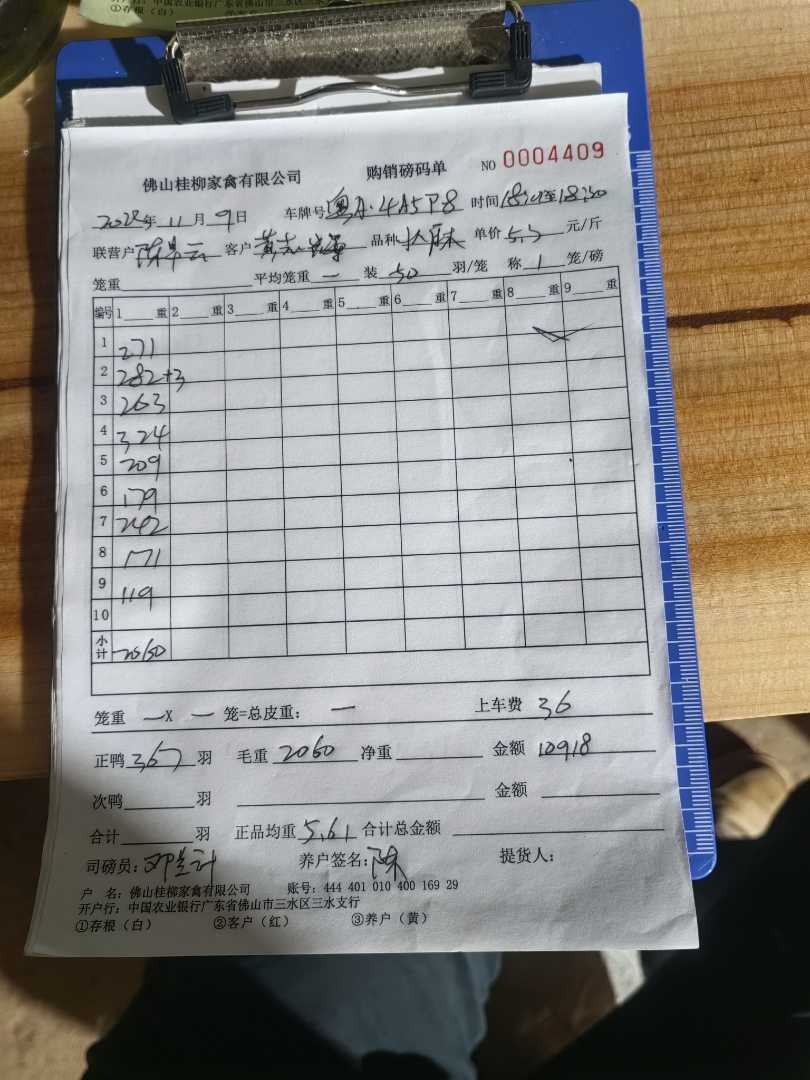 开户行：中国农业银行广东省佛山市三水区三水支
①存根（白）
佛山桂柳家禽有限公司 购销磅码单 NO 0004409
年 11 月 9 日 车牌号 粤A·4A5P8 时间
联营户 客户 品种 单价 5.3 元/斤
笼重 平均笼重 一 装 50 羽/笼 称 1 笼/磅
编号 1 重 2 重 3 重 4 重 5 重 6 重 7 重 8 重 9 重
1 271
2 282+3
3 263
4 324
5 209
6 179
7 242
8 171
9 119
10
小计 2060
笼重 一 X 一 笼=总皮重： 一 上车费 36
正鸭 367 羽 毛重 2060 净重 金额 10918
次鸭 羽 金额
合计 羽 正品均重 5.61 合计总金额
司磅员： 养户签名：陈 提货人：
户 名：佛山桂柳家禽有限公司 账号：444 401 010 400 169 29
开户行：中国农业银行广东省佛山市三水区三水支行
①存根（白） ②客户（红） ③养户（黄）